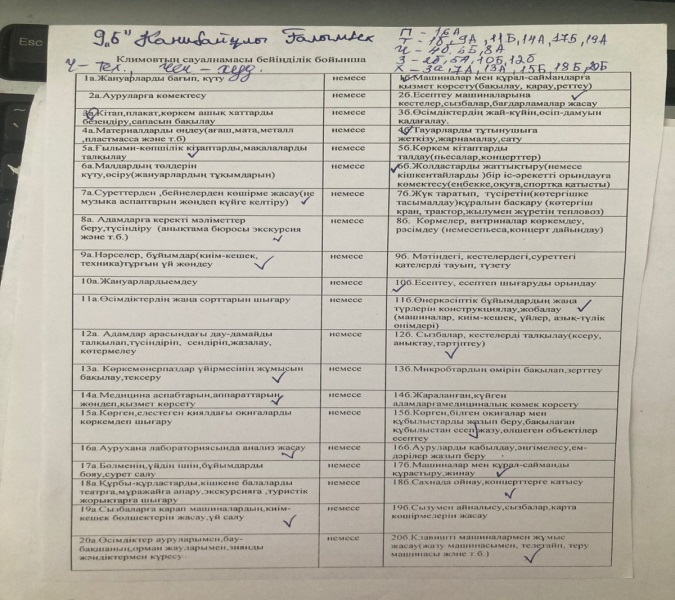 Esc
9 "Б" Қанибайұлы Ғалымбек
П - 16А
Т - 1б, 9А, 11Б, 14А, 17Б, 19А
Ч - 4б, 6Б, 8А
З - 2б, 5А, 10Б, 12б
Х - 3а, 7А, 13А, 15Б, 18Б, 20Б
Климовтың сауалнамасы бейінділік бойынша
Ч - тех., чел - худ.
1а.Жануарларды бағып, күту
немесе
1б.Машиналар мен құрал-саймандарға
қызмет көрсету(бақылау, қарау,реттеу)
2а.Ауруларға көмектесу
немесе
2б.Есептеу машиналарына
кестелер,сызбалар,бағдарламалар жасау
3а.Кітап,плакат,көркем ашық хаттарды
безендіру,сапасын бақылау
немесе
3б.Өсімдіктердің жай-күйін,өсіп-дамуын
қадағалау.
4а.Материалдарды өңдеу(ағаш,мата,металл
,пластмасса және т.б)
немесе
4б.Тауарларды тұтынушыға
жеткізу,жарнамалау,сату
5а.Ғылыми-көпшілік кітаптарды,мақалаларды
талқылау
немесе
5б.Көркем кітаптарды
талдау(пьесалар,концерттер)
6а.Малдардың төлдерін
күту,өсіру(жануарлардың тұқымдарын)
немесе
6б.Жолдастарды жаттықтыру(немесе
кішкентайларды )бір іс-әрекетті орындауға
көмектесу(еңбекке,оқуға,спортқа қатысты)
7а.Суреттерден ,бейнелерден көшірме жасау(не
музыка аспаптарын жөндеп күйге келтіру)
немесе
7б.Жүк таратып, түсіретін(көтергішке
тасымалдау)құралын басқару (көтергіш
кран, трактор,жылумен жүретін тепловоз)
8а. Адамдарға керекті мәліметтер
беру,түсіндіру (анықтама бюросы экскурсия
және т.б.)
немесе
8б. Көрмелер, витриналар көркемдеу,
рәсімдеу (немесепьеса,концерт дайындау)
9а.Нәрселер, бұйымдар(киім-кешек,
техника)тұрғын үй жөндеу
немесе
9б. Мәтіндегі, кестелердегі,суреттегі
қателерді тауып, түзету
10а.Жануарлардыемдеу
немесе
10б.Есептеу, есептеп шығаруды орындау
11а.Өсімдіктердің жаңа сорттарын шығару
немесе
11б.Өнеркәсіптік бұйымдардың жаңа
түрлерін конструкциялау,жобалау
(машиналар, киім-кешек, үйлер, азық-түлік
өнімдері)
12а. Адамдар арасындағы дау-дамайды
талқылап,түсіндіріп, сендіріп,жазалау,
көтермелеу
немесе
12б. Сызбалар, кестелерді талқылау(ксеру,
анықтау,тәртіптеу)
13а. Көркемөнерпаздар үйірмесінің жұмысын
бақылау,тексеру
немесе
13б.Микробтардың өмірін бақылап,зерттеу
14а.Медицина аспабтарын,аппараттарын
жөндеп,қызмет көрсету
немесе
14б.Жараланған,күйген
адамдарғамедициналық көмек көрсету
15а.Көрген,елестеген қиялдағы оқиғаларды
көркемдеп шығару
немесе
15б.Көрген,білген оқиғалар мен
құбылыстарды жазып беру,бақылаған
құбылыстан есеп жазу,өлшеген объектілер
есептеу
16а.Аурухана лабораториясында анализ жасау
немесе
16б.Ауруларды қабылдау,әңгімелесу,ем-
дәрілер жазып беру
17а.Бөлменің,үйдің ішін,бұйымдарды
бояу,сурет салу
немесе
17б.Машиналар мен құрал-сайманды
құрастыру,жинау
18а.Құрбы-құрдастарды,кішкене балаларды
театрға,мұражайға апару,экскурсияға ,туристік
жорықтарға шығару
немесе
18б.Сахнада ойнау,концерттерге қатысу
19а.Сызбаларға қарап машиналардың,киім-
кешек бөлшектерін жасау,үй салу
немесе
19б.Сызумен айналысу,сызбалар,карта
көшірмелерін жасау
20а.Өсімдіктер ауруларымен,бау-
бақшаның,орман жауларымен,зиянды
жәндіктермен күресу
немесе
20б.Клавишті машиналармен жұмыс
жасау(жазу машинасымен, телетайп, теру
машинасы және т.б.)